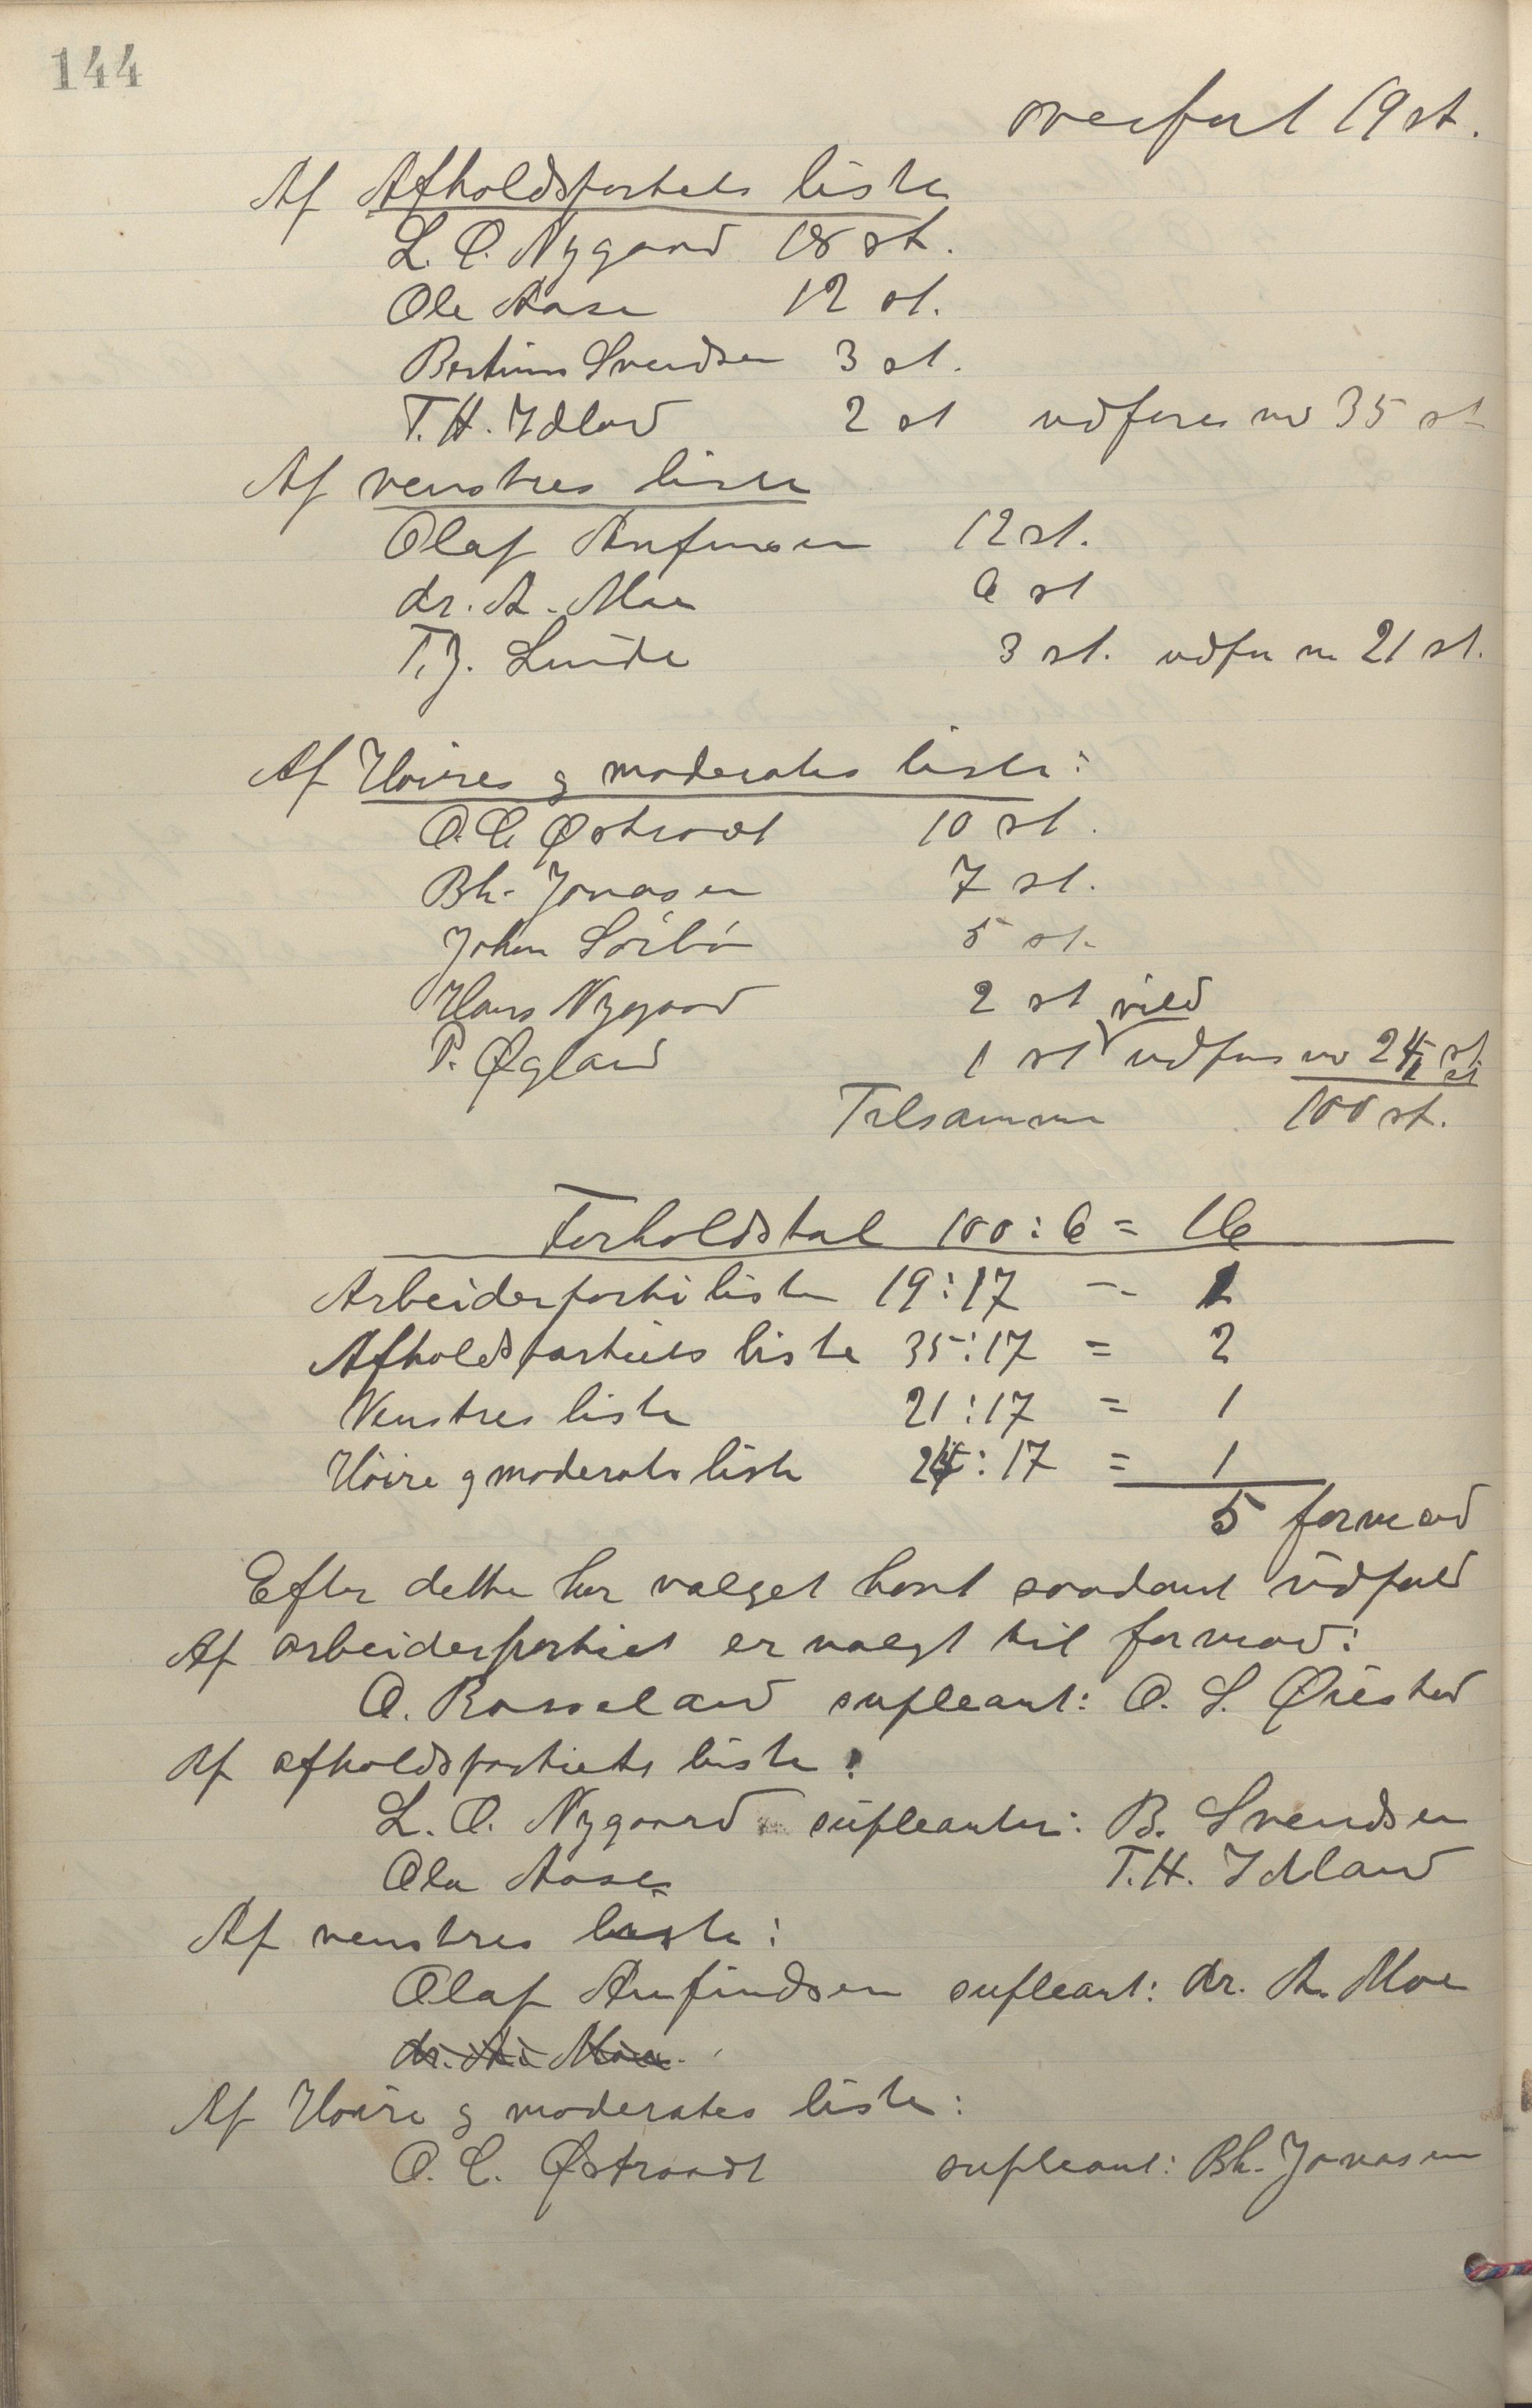 144
overført 19 st.
Af Afholdspartiets liste
L. O. Nygaard 18 st.
Ole Aase 12 st.
Bertinus Svendsen 3 st.
T. H. Idland 2 st udføres m 35 st
Af venstres liste
Olaf Anfinsen 12 st.
dr. A. Moe 6 st
T. J. Lunde 3 st. udfør m 21 st.
Af Høires og moderates liste:
O. C. Østraadt 10 st.
Bh. Jonasen 7 st.
Johan Sörbö 5 st.
Hans Nygaard 2 st vild
P. Øgland 1 st udføres m 24 st
1 st
Tilsammen 100 st.
Forholdstal 100 : 6 = 16
Arbeiderparti liste 19 : 17 = 1
Afholdspartiets liste 35 : 17 = 2
Venstres liste 21 : 17 = 1
Höire og moderate liste 24 : 17 = 1
5 formænd
Efter dette har valget havt saadant udfald
Af arbeiderpartiet er valgt til formand:
O. Rosseland supleant: O. S. Øiestad
Af afholdspartiets liste:
L. O. Nygaard supleanter: B. Svendsen
Ole Aase T. H. Idland
Af venstres liste:
Olaf Anfindsen supleant: dr. A. Moe
dr. A. Moe.
Af Høire og moderates liste:
O. C. Østraadt supleant: Bh. Jonasen